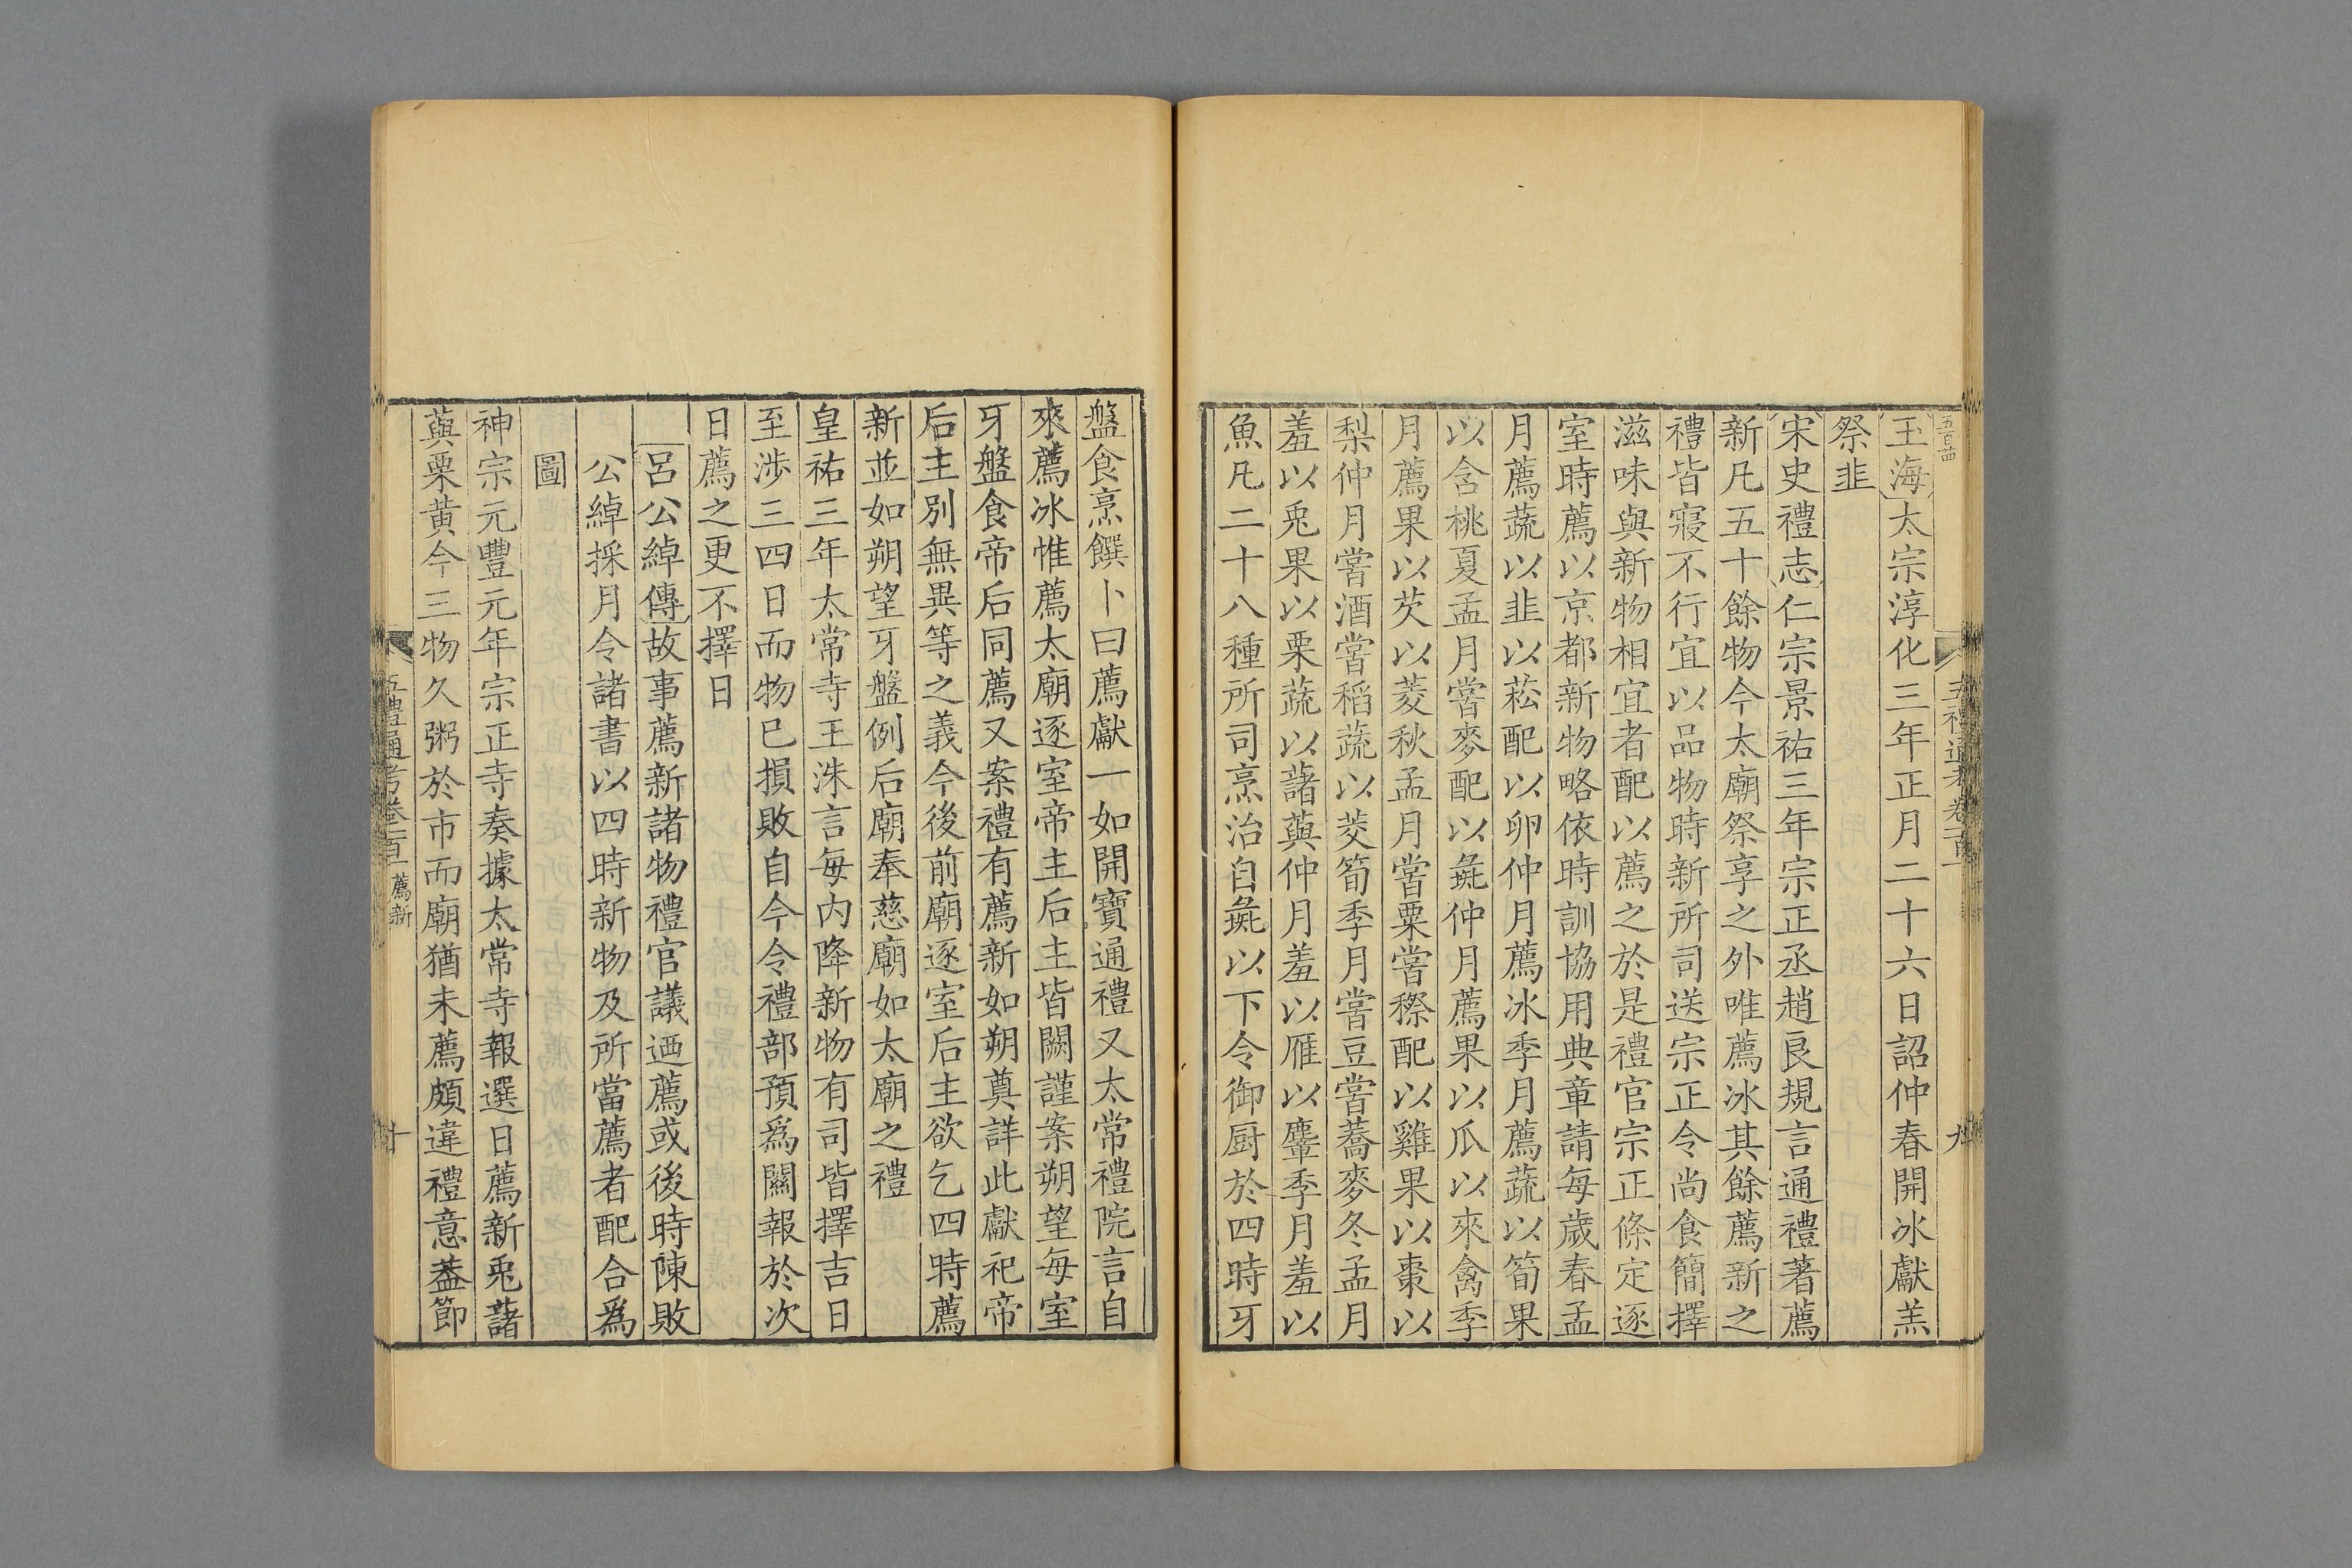 五禮通考卷一百一
九
玉海太宗淳化三年正月二十六日詔仲春開冰獻羔
祭韭
宋史禮志仁宗景祐三年宗正丞趙良規言通禮著薦
新凡五十餘物今太廟祭享之外唯薦冰其餘薦新之
禮皆寢不行宜以品物時新所司送宗正令尚食簡擇
滋味與新物相宜者配以薦之於是禮官宗正條定逐
室時薦以京都新物略依時訓協用典章請每歲春孟
月薦蔬以韭以菘配以卵仲月薦冰季月薦蔬以筍果
以含桃夏孟月嘗麥配以彘仲月薦果以瓜以來禽季
月薦果以芡以菱秋孟月嘗粟嘗穄配以雞果以棗以
梨仲月嘗酒嘗稻蔬以茭筍季月嘗豆嘗蕎麥冬孟月
羞以兎果以栗蔬以藷藇仲月羞以雁以麞季月羞以
魚凡二十八種所司烹治自彘以下令御厨於四時牙
盤食烹饌卜日薦獻一如開寶通禮又太常禮院言自
來薦冰惟薦太廟逐室帝主后主皆闕謹案朔望每室
牙盤食帝后同薦又案禮有薦新如朔奠詳此獻祀帝
后主別無異等之義今後前廟逐室后主欲乞四時薦
新並如朔望牙盤例后廟奉慈廟如太廟之禮
皇祐三年太常寺王洙言每內降新物有司皆擇吉日
至涉三四日而物已損敗自今令禮部預爲關報於次
日薦之更不擇日
呂公綽傳故事薦新諸物禮官議迺薦或後時陳敗
公綽採月令諸書以四時新物及所當薦者配合爲
圖
神宗元豐元年宗正寺奏據太常寺報選日薦新兎藷
藇栗黃今三物久粥於市而廟猶未薦頗違禮意葢節
五禮通考卷一百一 薦新
十